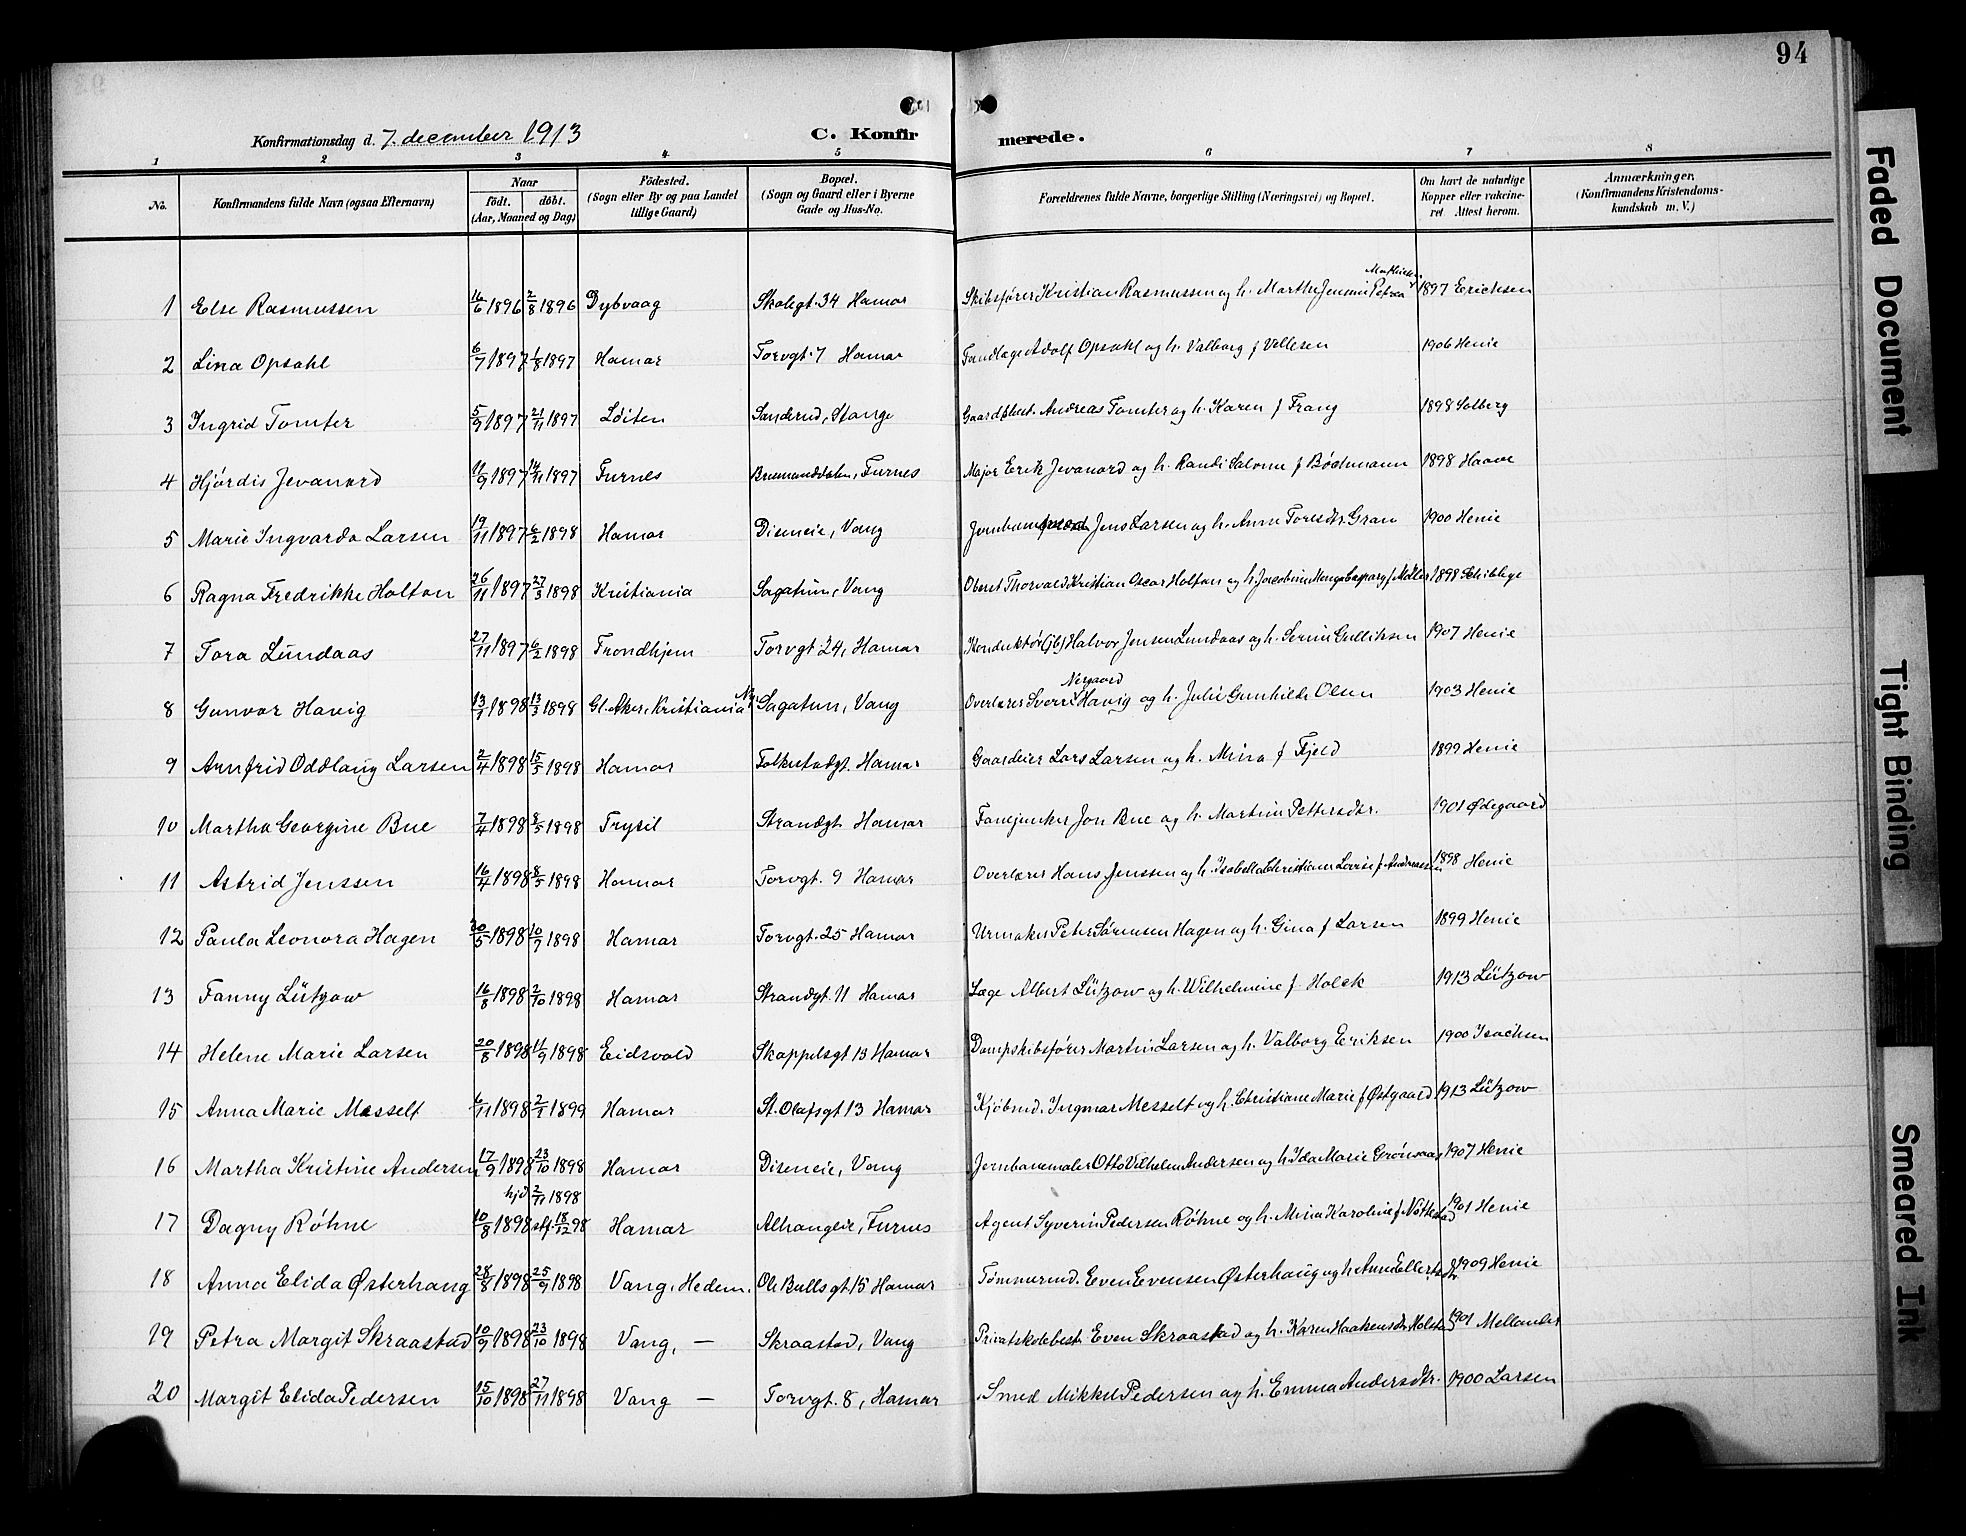 94
Konfirmationsdag d. 7. december 1913 C. Konfirmerede.
1 2 3 4 5 6 7 8
No. Konfirmandens fulde Navn (ogsaa Efternavn) Naar födt. döbt. (Aar, Maaned og Dag) Födested. (Sogn eller By og paa Landet tillige Gaard) Bopæl. (Sogn og Gaard eller i Byerne Gade og Hus-No. Forældrenes fulde Navne, borgerlige Stilling (Næringsvei) og Bopæl. Om havt de naturlige Kopper eller vakcineret Attest herom. Anmærkninger. (Konfirmandens Kristendomskundskab m. V.)
1 Else Rasmussen 16/6 1896 2/8 1896 Dybvaag Skolegt. 34 Hamar Skibsfører Kristian Rasmussen og h. Marthe Jensine Petrea Mathiesen 1897 Ericksen
2 Lina Opsahl 6/7 1897 1/8 1897 Hamar Torvgt. 7 Hamar Tandlæge Adolf Opsahl og h. Valborg f Vellesen 1906 Henie
3 Ingrid Tomter 5/9 1897 21/11 1897 Löiten Sanderud, Stange Andreas Tomter og h. Karen f Frang 1898 Solberg
4 Hjördis Jevanord 11/9 1897 14/11 1897 Furnes Brumunddalen, Furnes Major Erik Jevanord og h. Randi Salome f Bødtmann 1898 Haave
5 Marie Ingvarda Larsen 19/11 1897 6/2 1898 Hamar Diseneie, Vang Jens Larsen og h. Anne Toresdtr. Gran 1900 Henie
6 Ragna Fredrikke Holtan 26/11 1897 27/3 1898 Kristiania Sagatun, Vang Oberst Thorvald Kristian Oscar Holtan og h. Jacobine f Møller 1898 Schiblye
7 Tora Lundaas 27/11 1897 6/2 1898 Trondhjem Torvgt 24, Hamar Konduktör (jb) Halvor Jensen Lundaas og h. Serine Gulliksen 1907 Henie
8 Gunvor Havig 13/1 1898 13/3 1898 Gl. Aker, Kristiania Sagatun, Vang Overlærer Sverre Nergaard Havig og h. Julie Gunhilde Olsen 1903 Henie
9 Arnfrid Oddlaug Larsen 2/4 1898 15/5 1898 Hamar Folkestadgt. Hamar Gaardeier Lars Larsen og h. Mina f Fjeld 1899 Henie
10 Martha Georgine Bue 7/4 1898 8/5 1898 Trysil Strandgt. Hamar Fanejunker Jon Bue og h. Martine Pettersdtr. 1901 Ødegaard
11 Astrid Jenssen 16/4 1898 8/5 1898 Hamar Torvgt. 9 Hamar Overlærer Hans Jenssen og h. Isabella Christiane Lovise f Andreassen 1898 Henie
12 Paula Leonora Hagen 30/5 1898 10/7 1898 Hamar Torvgt. 25 Hamar Urmaker Peter Sørensen Hagen og h. Gina f Larsen 1899 Henie
13 Fanny Lützow 16/8 1898 2/10 1898 Hamar Strandgt. 11 Hamar Læge Albert Lützow og h. Wilhelmine f. Holck 1913 Lützow
14 Helene Marie Larsen 20/8 1898 11/9 1898 Eidsvold Skappelsgt 13 Hamar Dampskibsfører Martin Larsen og h. Valborg Eriksen 1900 Isachsen
15 Anna Marie Messelt 6/11 1898 2/1 1899 Hamar St. Olafsgt 13 Hamar Kjøbmd. Ingmar Messelt og h. Christiane Marie f Østgaard 1913 Lützow
16 Martha Kristine Andersen 17/9 1898 23/10 1898 Hamar Diseneie, Vang Jernbanemaler Otto Vilhelm Andersen og h. Ida Marie Grönaas 1907 Henie
17 Dagny Røhne 10/8 1898 hjd 2/11 1898 stf. 18/12 98 Hamar Alhaugeie, Furnes Agent Syverin Pedersen Røhne og h. Mina Karoline f Nöttestad 1901 Henie
18 Anna Elida Østerhaug 28/8 1898 25/9 1898 Vang, Hedem. Ole Bullsgt 15 Hamar Tømmermd. Even Evensen Østerhaug og h Anne Ellertsdtr 1909 Henie
19 Petra Margit Skraastad 10/9 1898 23/10 1898 Vang, — Skraastad, Vang Privatskolebest. Even Skraastad og h. Karen Haakensdtr. Holstad 1901 Mellander
20 Margit Elida Pedersen 15/10 1898 27/11 1898 Vang — Torvgt. 8, Hamar Smed Mikkel Pedersen og h. Emma Andersdtr. 1900 Larsen
Faded Document
Tight Binding
Smeared Ink